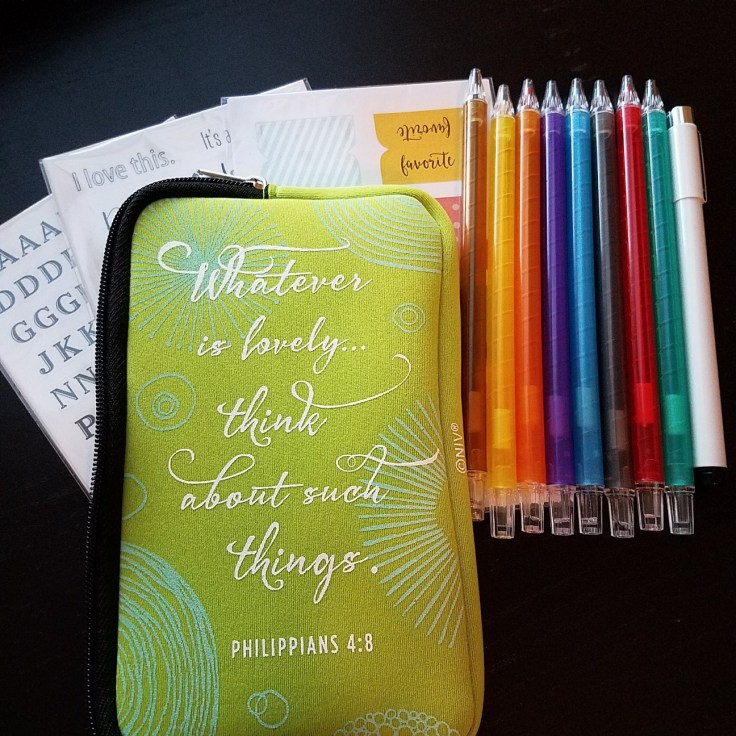 I love this.
It's a
favorite
favorite
AAA
DDDD
GGG
JKK
NN
Whatever
is lovely...
think
about such
things.
PHILIPPIANS 4:8
©NIV®